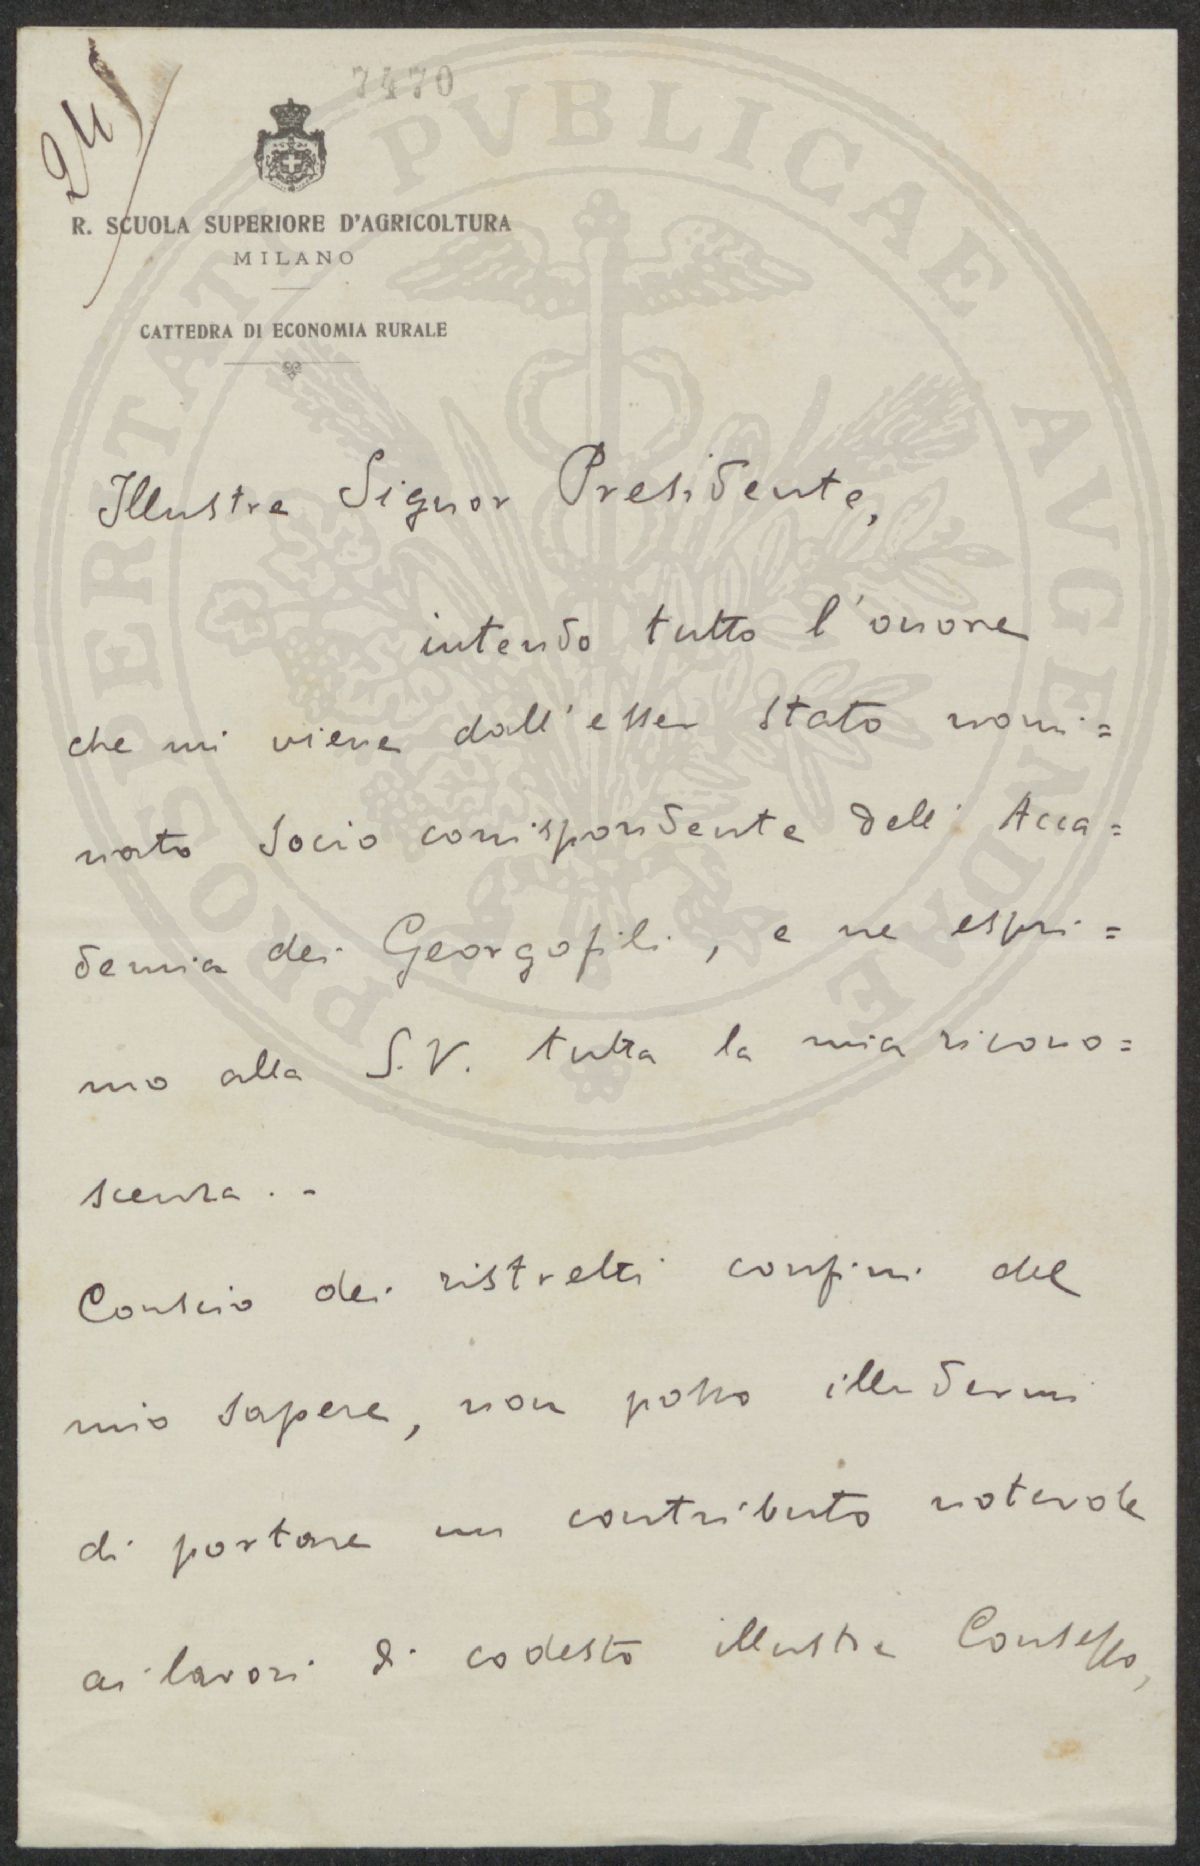 7470
24
R. SCUOLA SUPERIORE D'AGRICOLTURA
MILANO
CATTEDRA DI ECONOMIA RURALE
PROSPERITATI PVBLICAE AVGENDAE
Illustre Signor Presidente,
intendo tutto l'onore
che mi viene dall'esser stato nomi=
nato socio corrispondente dell'Acca=
demia dei Georgofili, e ne espri=
mo alla S.V. tutta la mia ricono=
scenza. -
Conscio dei ristretti confini del
mio sapere, non posso illudermi
di portare un contributo notevole
ai lavori di codesto illustre Consesso,